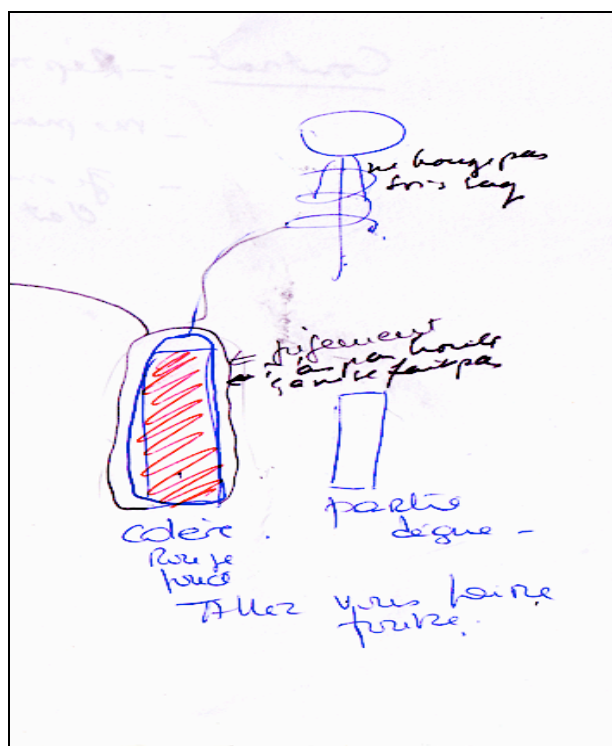 ne bouge pas
sois sag
jugement
ça ne se fait pas
colère.
Rouge
foncé
partie
Allez vous faire
foutre.